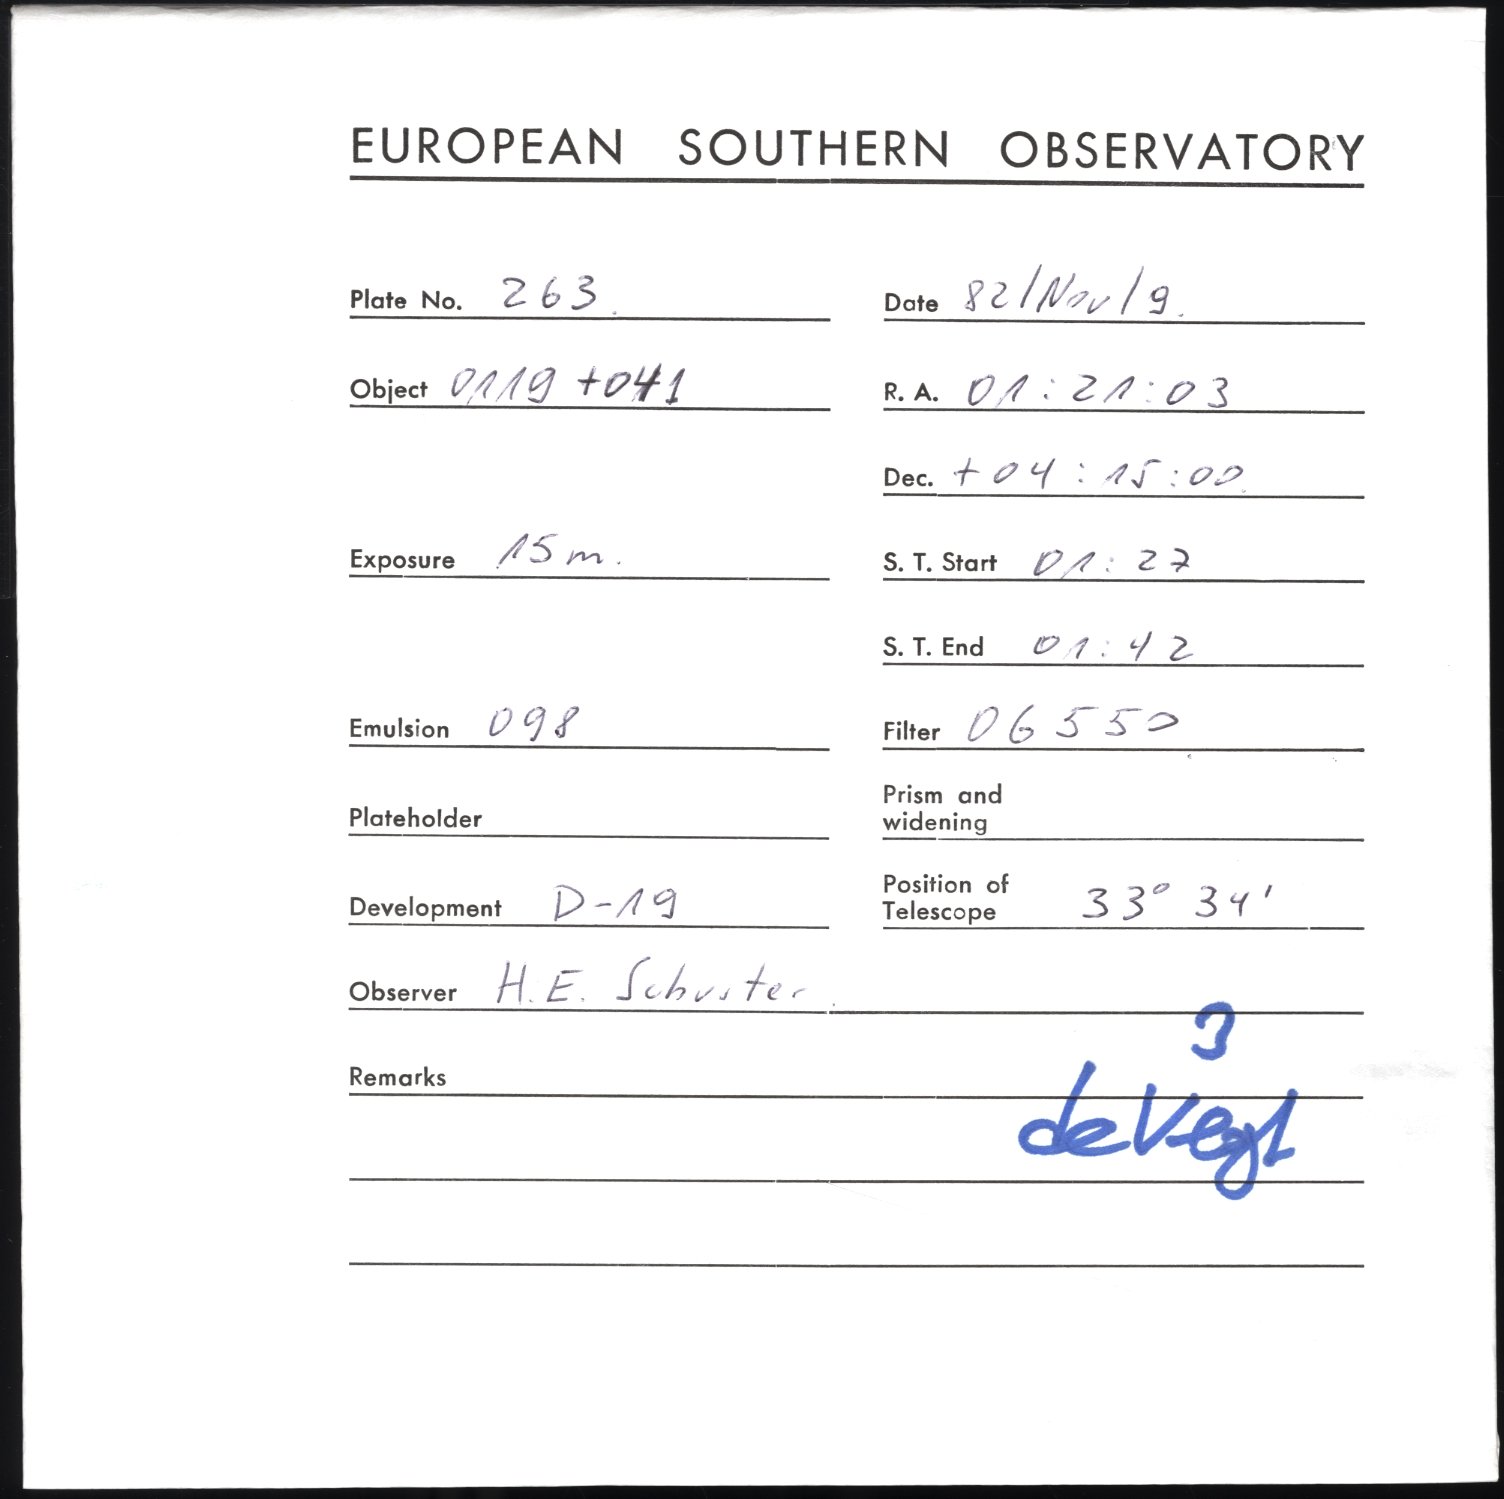 EUROPEAN SOUTHERN OBSERVATORY
Plate No. 263.
Date 82/Nov/9.
Object 0119+041
R. A. 01:21:03
Dec. +04:15:00
Exposure 15m.
S. T. Start 01:27
S. T. End 01:42
Emulsion 098
Filter 06550
Plateholder
Prism and
widening
Development D-19
Position of
Telescope 33° 34'
Observer H.E. Schuster.
3
Remarks
deVegt